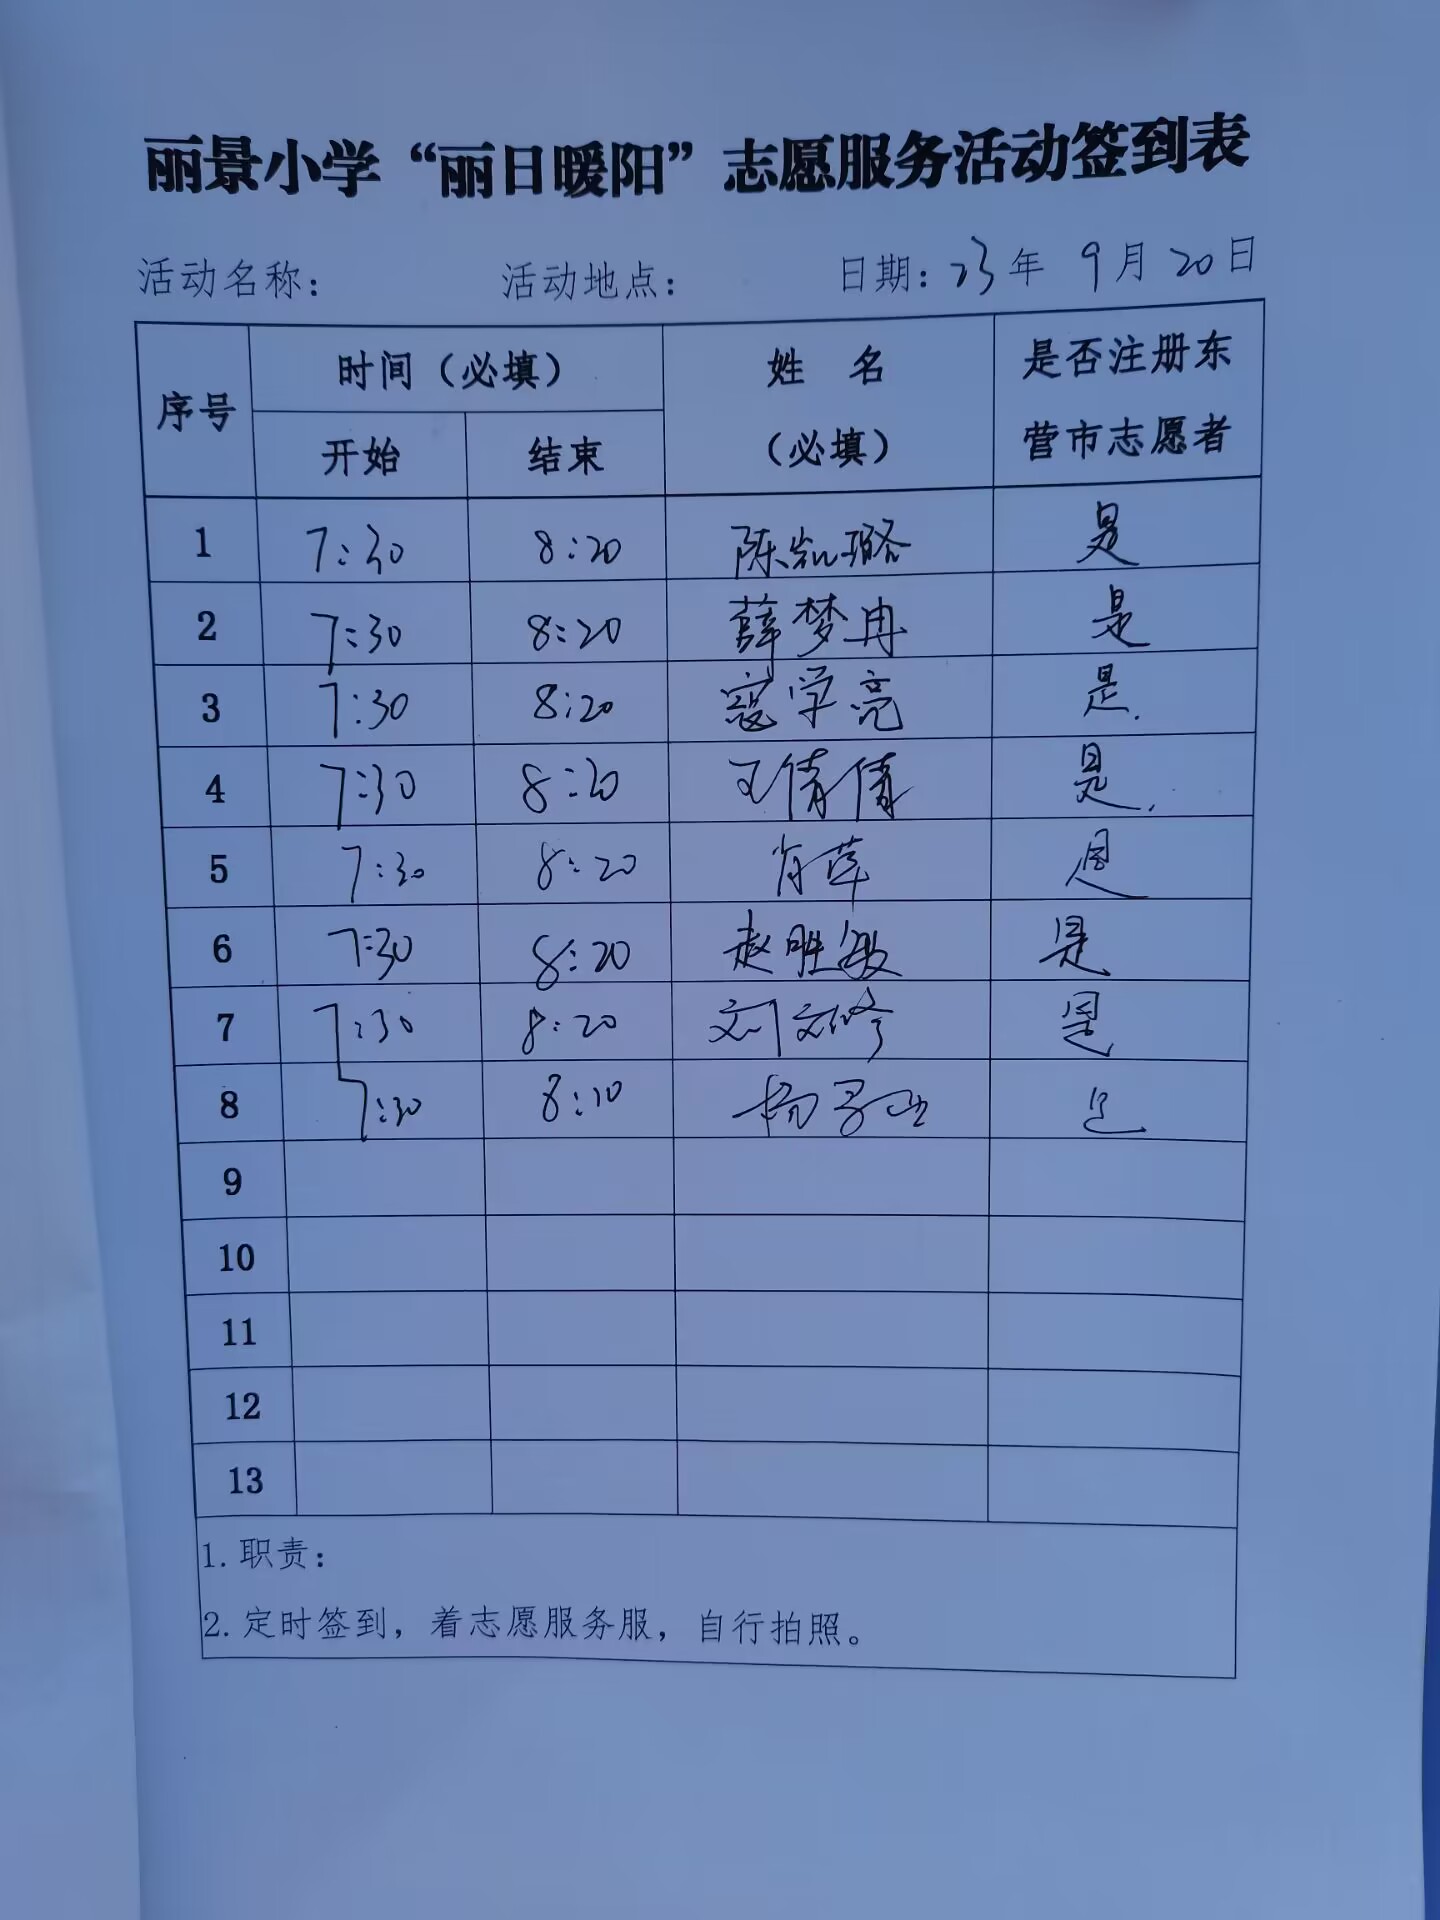 丽景小学“丽日暖阳”志愿服务活动签到表
活动名称： 活动地点： 日期：23年 9月20日
序号 时间（必填） 姓 名（必填） 是否注册东营市志愿者
开始 结束
1 7:30 8:20 陈凯璐 是
2 7:30 8:20 薛梦冉 是
3 7:30 8:20 寇学亮 是.
4 7:30 8:20 王倩倩 是.
5 7:30 8:20 肖萍 是
6 7:30 8:20 赵胜敏 是
7 7:30 8:20 刘文修 是
8 7:30 8:10 杨 是
9
10
11
12
13
1. 职责：
2. 定时签到，着志愿服务服，自行拍照。